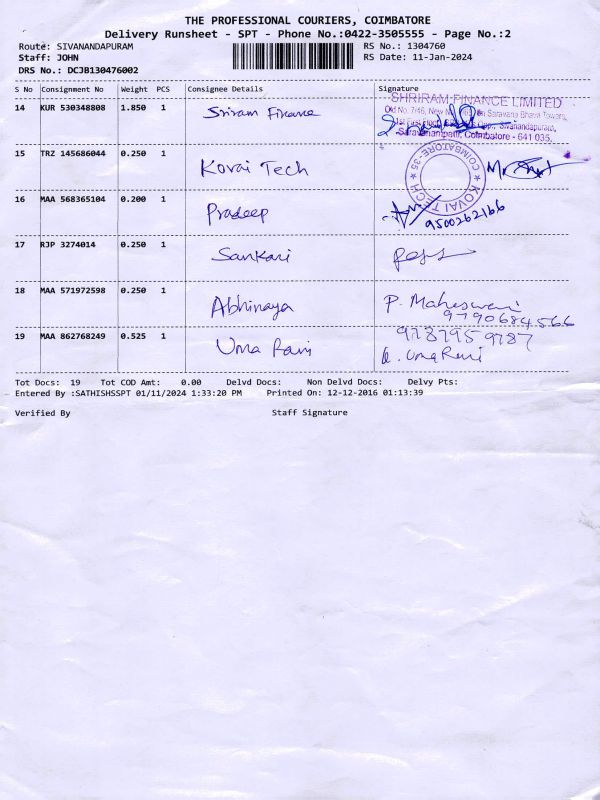 THE PROFESSIONAL COURIERS, COIMBATORE
Delivery Runsheet - SPT - Phone No.:0422-3505555 - Page No.:2
Route: SIVANANDAPURAM
RS No.: 1304760
Staff: JOHN
RS Date: 11-Jan-2024
DRS No.: DCJB130476002
S No Consignment No Weight PCS Consignee Details Signature
14 KUR 530348808 1.850 1 Sriram Finance
SHRIRAM FINANCE LIMITED
Saravana Bhava Towers,
Sivanandapuram,
Saravanampatti, Coimbatore - 641 035.
15 TRZ 145686044 0.250 1 Kovai Tech
KOVAI TECH COIMBATORE-35
16 MAA 568365104 0.200 1 Pradeep
9500262166
17 RJP 3274014 0.250 1 Sankari
18 MAA 571972598 0.250 1 Abhinaya P. Maheswari
9790684566
19 MAA 862768249 0.525 1 Uma Rani 9787959787
Uma Rani
Tot Docs: 19 Tot COD Amt: 0.00 Delvd Docs: Non Delvd Docs: Delvy Pts:
Entered By :SATHISHSSPT 01/11/2024 1:33:20 PM Printed On: 12-12-2016 01:13:39
Verified By Staff Signature